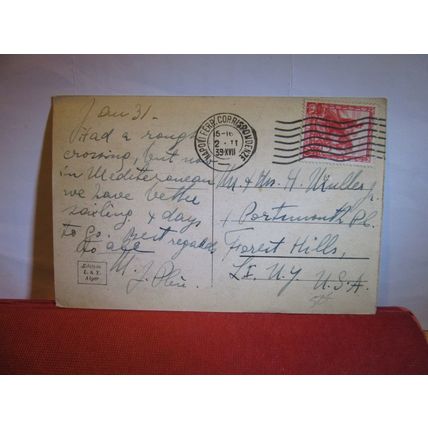 Jan 31.
Had a rough
crossing, but now
in Mediterranean
we have better
sailing. 4 days
to go. Best regards
to all
M. J.
Editions
L. & Y.
Alger
NAPOLI FERR. CORRISPONDENZE
15-16
2 · II
39·XVII
Mr & Mrs. H.
1 Portsmouth Pl.
Forest Hills,
L.I. N.Y. U.S.A.